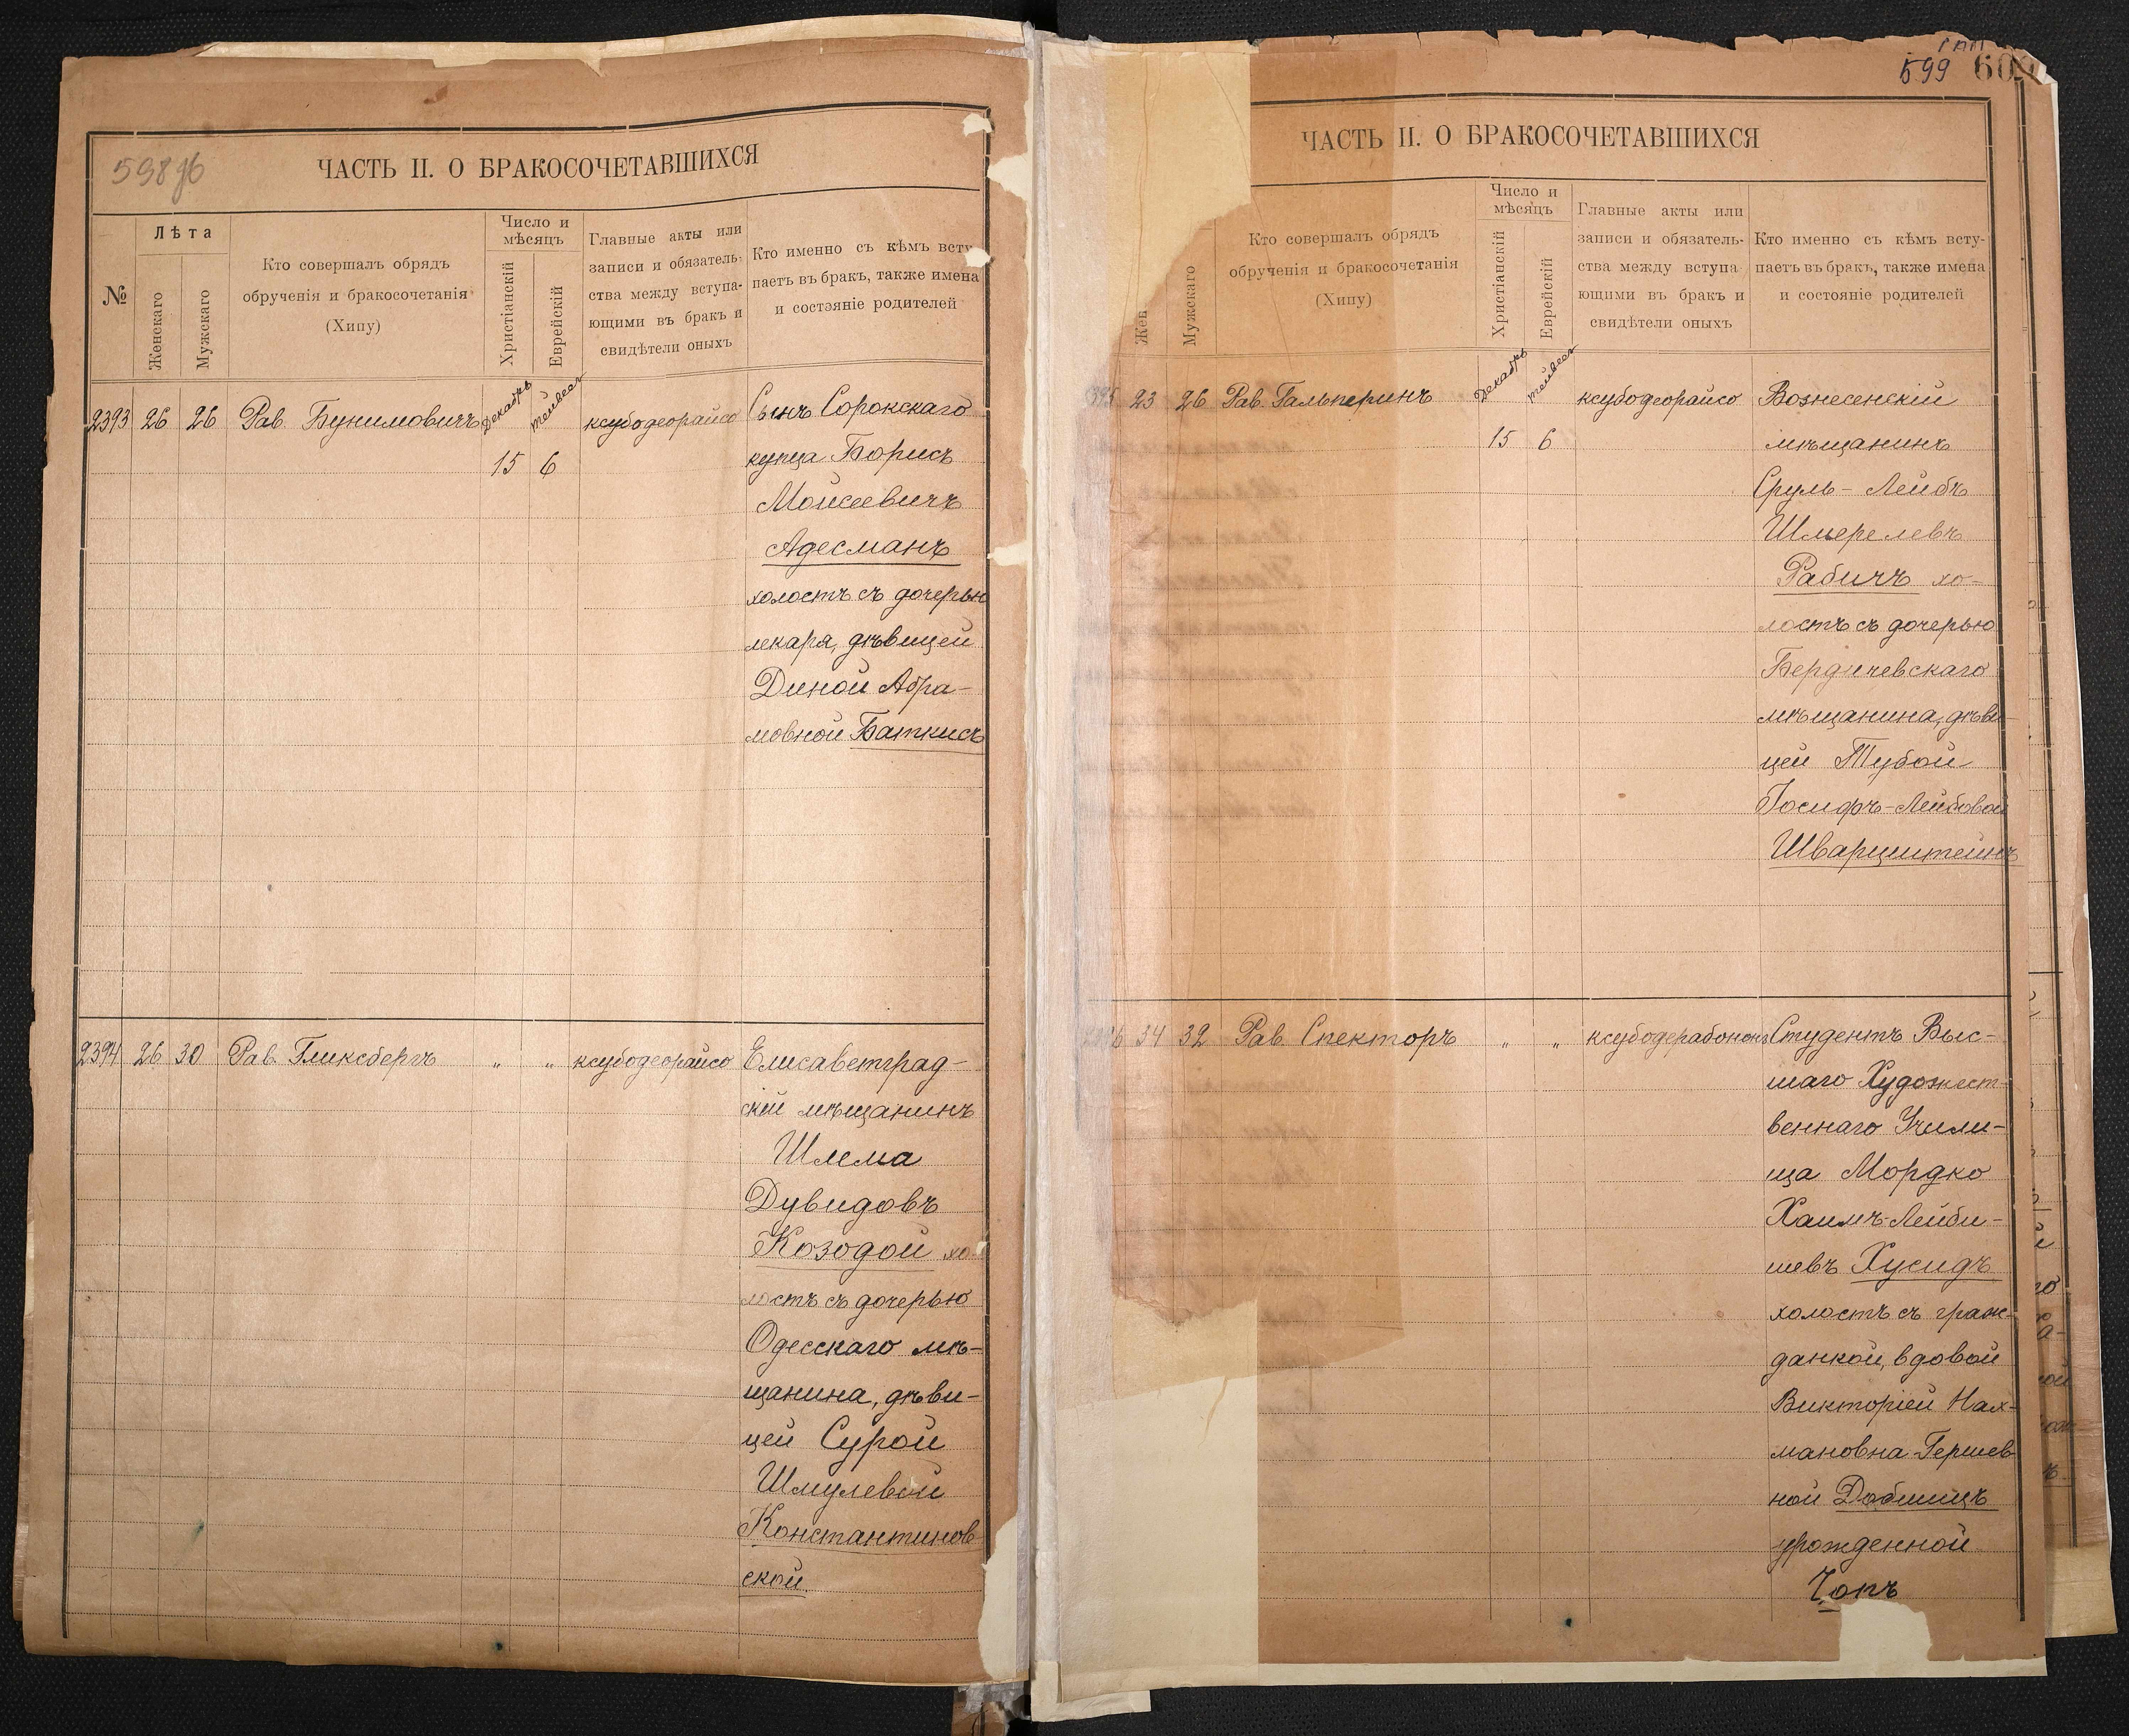 598об
ЧАСТЬ II. О БРАКОСОЧЕТАВШИХСЯ
№
Лѣта
Женскаго
Мужскаго
Кто совершалъ обрядъ
обрученія и бракосочетанія
(Хипу)
Число и
мѣсяцъ
Христіанскій
Еврейскій
Главные акты или
записи и обязатель-
ства между вступа-
ющими въ бракъ и
свидѣтели оныхъ
Кто именно съ кѣмъ всту
паетъ въ бракъ, также имена
и состояніе родителей
2393 26 26 Рав. Бунимовичъ Декабрь тейвесъ ксубодеорайсо Сынъ Сорокскаго
15 6 купца Борисъ
Моисеевичъ
Адесманъ
холостъ съ дочерью
лекаря, дѣвицей
Диной Абра-
мовной Баткисъ
2394 26 30 Рав. Гликсбергъ " " ксубодеорайсо Елисаветград-
скій мѣщанинъ
Шлема
Дувидовъ
Козодой хо-
лостъ съ дочерью
Одесскаго мѣ-
щанина, дѣви-
цей Сурой
Шмулевой
Константинов
ской.
599
ЧАСТЬ II. О БРАКОСОЧЕТАВШИХСЯ
Жен
Мужскаго
Кто совершалъ обрядъ
обрученія и бракосочетанія
(Хипу)
Число и
мѣсяцъ
Христіанскій
Еврейскій
Главные акты или
записи и обязатель-
ства между вступа
ющими въ бракъ и
свидѣтели оныхъ
Кто именно съ кѣмъ всту-
паетъ въ бракъ, также имена
и состояніе родителей
23 26 Рав. Гальперинъ Декабрь тейвесъ ксубодеорайсо Вознесенскій
15 6 мѣщанинъ
Сруль-Лейбъ
Шмерелевъ
Рабичъ хо-
лостъ съ дочерью
Бердичевскаго
мѣщанина, дѣви-
цей Тубой
Іосифъ-Лейбовой
Шварцштейнъ
34 32 Рав. Спекторъ " " ксубодерабононъ Студентъ Выс-
шаго Художест-
веннаго Учили-
ща Мордко
Хаимъ-Лейби-
шевъ Хусидъ
холостъ съ граж-
данкой, вдовой
Викторіей Нах-
мановна-Гершев-
ной Добшицъ
урожденной
Чопъ